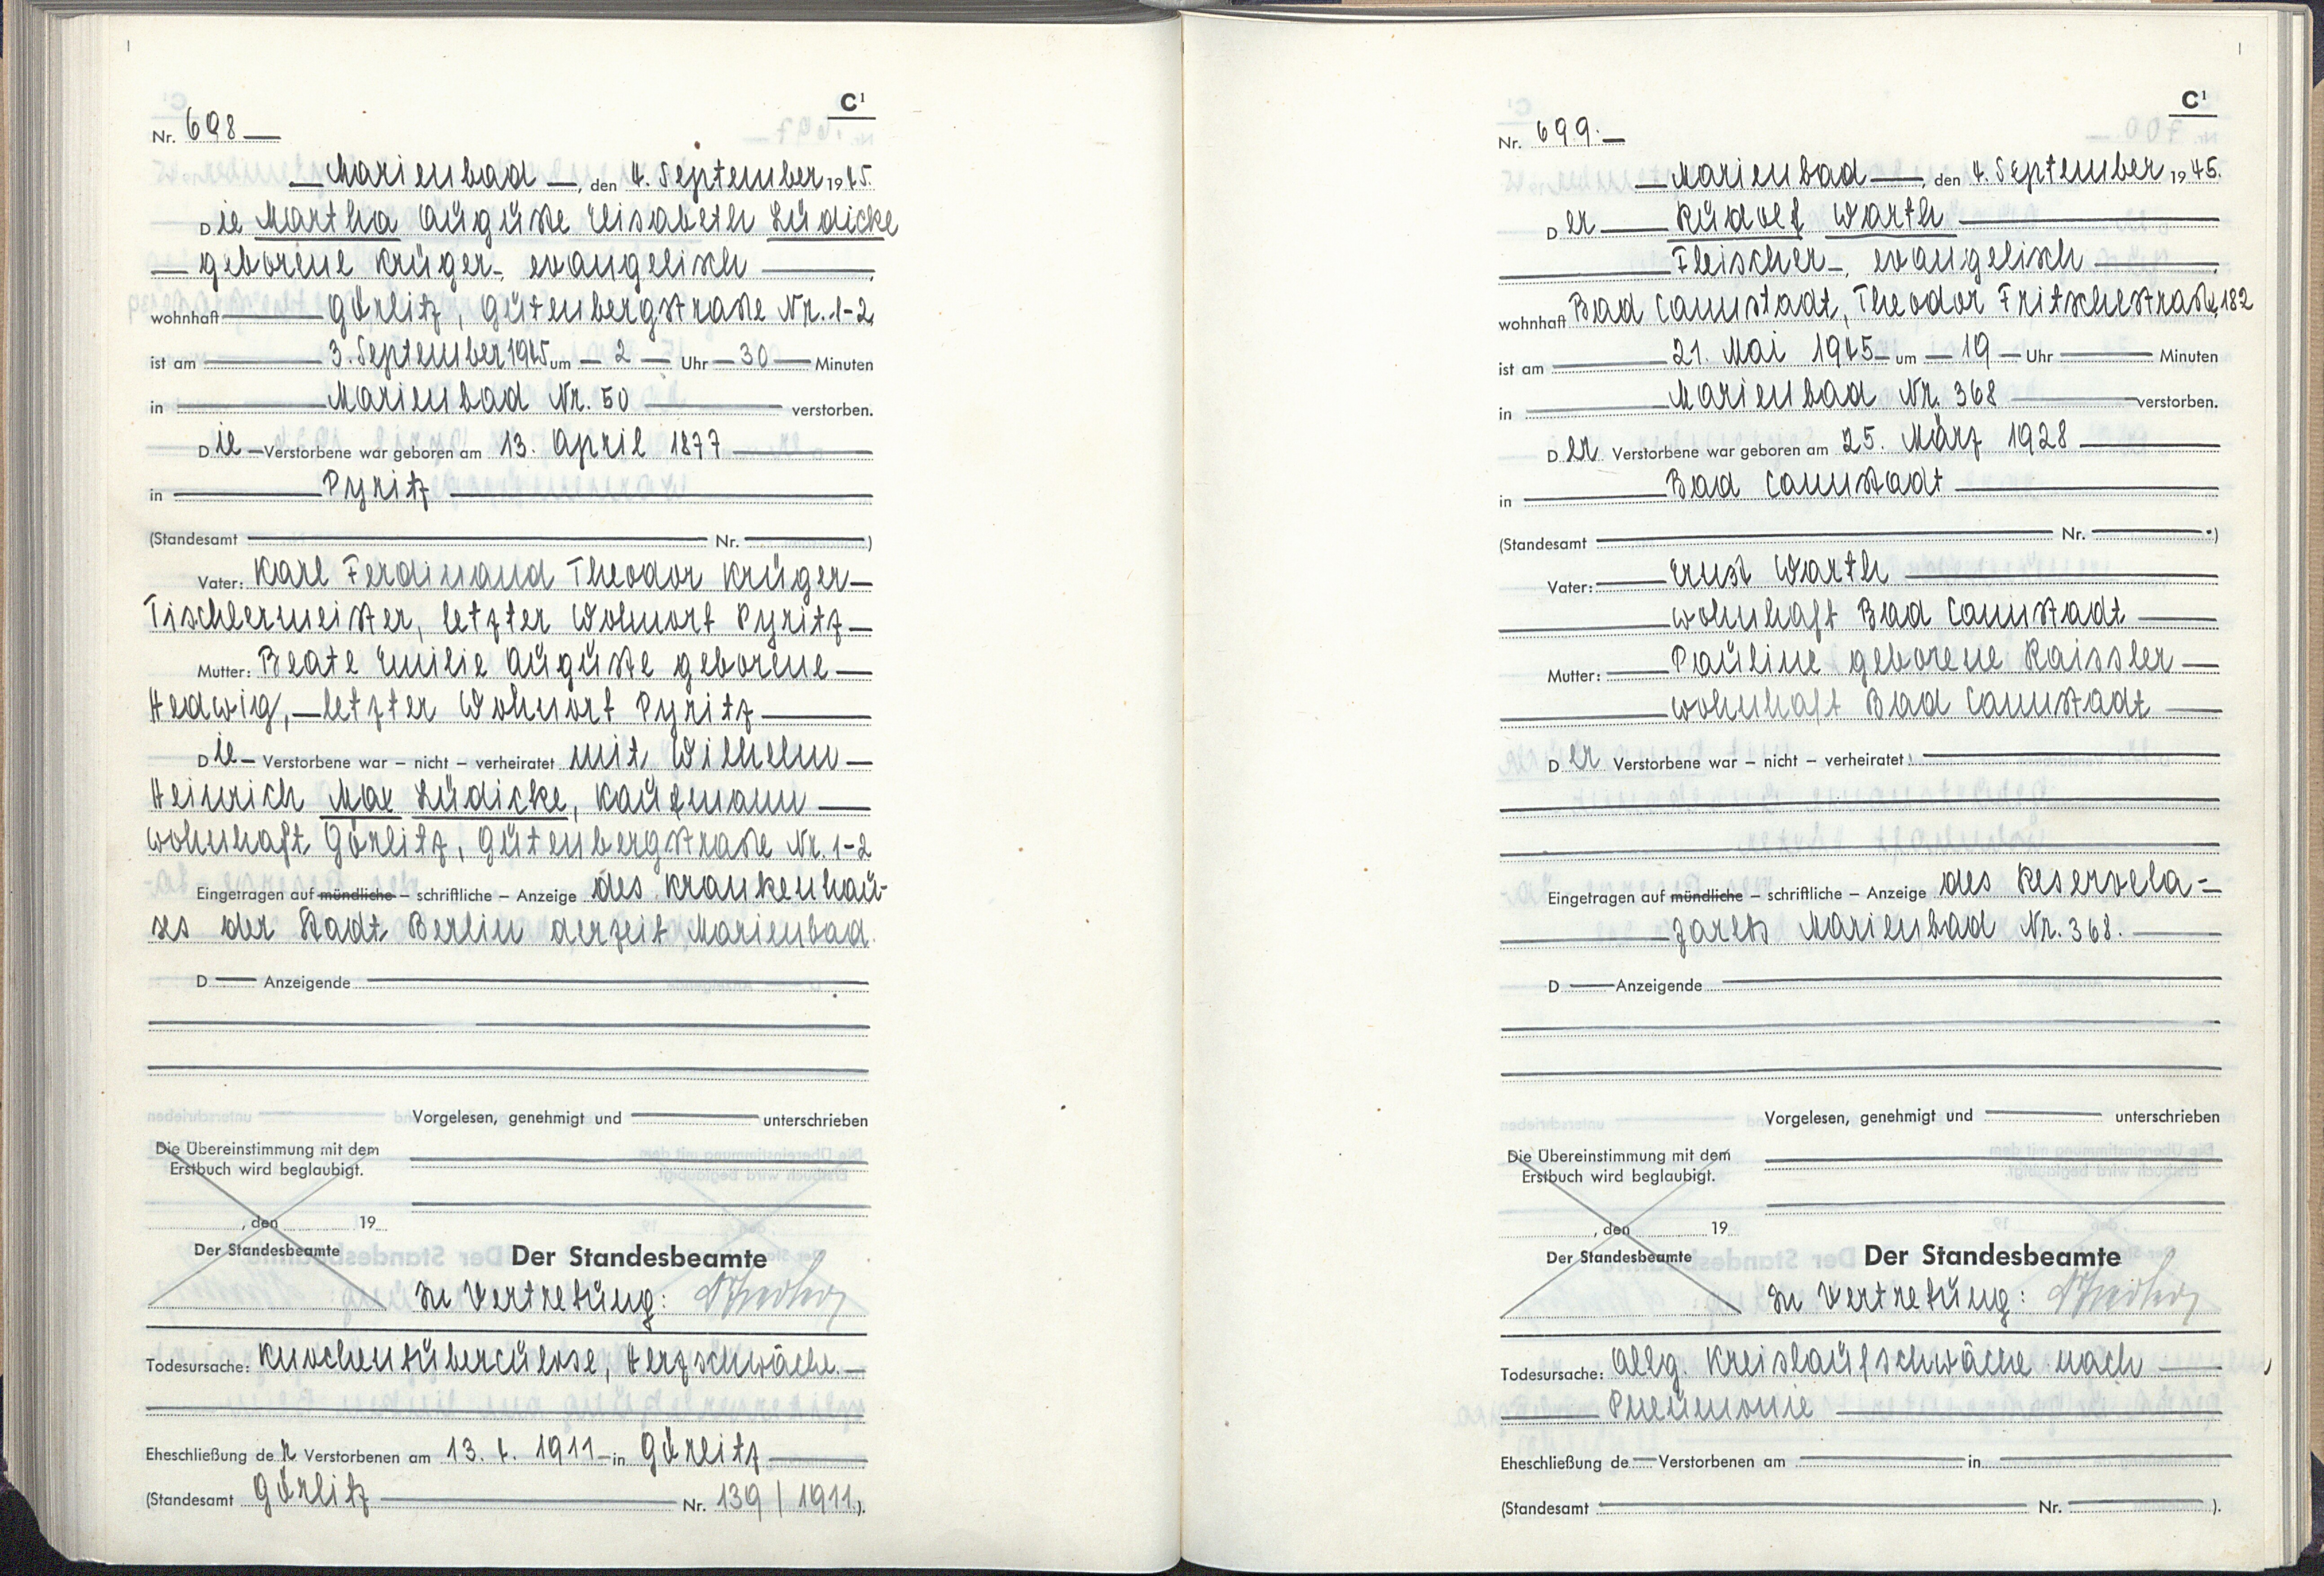 C¹
Nr. 698
Marienbad, den 4. September 1945.
Die Martha Auguste Elisabeth Lüdicke
geborene Krüger, evangelisch
wohnhaft Görlitz, Gutenbergstraße Nr. 1-2
ist am 3. September 1945 um 2 Uhr 30 Minuten
in Marienbad Nr. 50 verstorben.
Die Verstorbene war geboren am 13. April 1877
in Pyritz
(Standesamt Nr. )
Vater: Karl Ferdinand Theodor Krüger
Tischlermeister, letzter Wohnort Pyritz
Mutter: Beate Emilie Auguste geborene
Hedwig, letzter Wohnort Pyritz
Die Verstorbene war – nicht – verheiratet mit Wilhelm
Heinrich Max Lüdicke, Kaufmann
wohnhaft Görlitz, Gutenbergstraße Nr. 1-2
Eingetragen auf mündliche – schriftliche – Anzeige des Krankenhau-
ses der Stadt Berlin derzeit Marienbad.
D Anzeigende
Vorgelesen, genehmigt und unterschrieben
Die Übereinstimmung mit dem
Erstbuch wird beglaubigt.
, den 19
Der Standesbeamte
Der Standesbeamte
In Vertretung:
Todesursache: Knochentuberculose, Herzschwäche.
Eheschließung der Verstorbenen am 13. 4. 1911 in Görlitz
(Standesamt Görlitz Nr. 139/1911.).
C¹
Nr. 699.
Marienbad, den 4. September 1945.
Der Rudolf Warth
Fleischer, evangelisch
wohnhaft Bad Cannstadt, Theodor Fritschestraße, 182
ist am 21. Mai 1945 um 19 Uhr Minuten
in Marienbad Nr. 368 verstorben.
Der Verstorbene war geboren am 25. März 1928
in Bad Cannstadt
(Standesamt Nr. )
Vater: Ernst Warth
wohnhaft Bad Cannstadt
Mutter: Pauline geborene Kaissler
wohnhaft Bad Cannstadt
Der Verstorbene war – nicht – verheiratet
Eingetragen auf mündliche – schriftliche – Anzeige des Reservela-
zaretts Marienbad Nr. 368.
D Anzeigende
Vorgelesen, genehmigt und unterschrieben
Die Übereinstimmung mit dem
Erstbuch wird beglaubigt.
, den 19
Der Standesbeamte
Der Standesbeamte
In Vertretung:
Todesursache: Allg. Kreislaufschwäche nach
Pneumonie
Eheschließung de Verstorbenen am in
(Standesamt Nr. ).